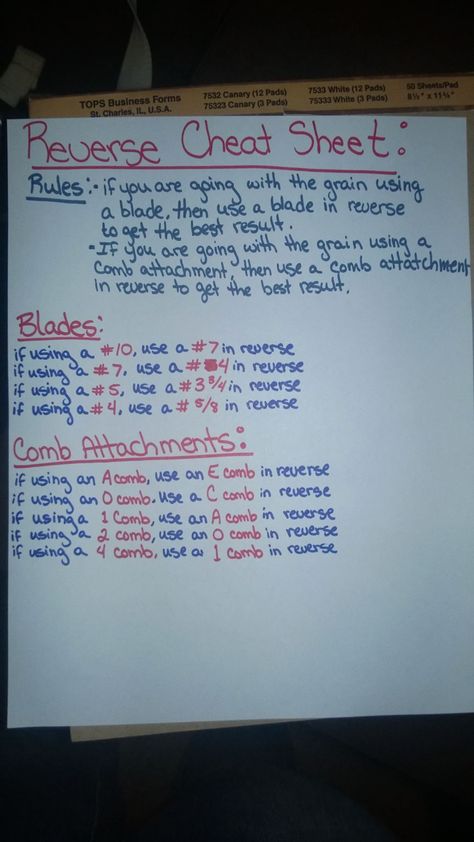 TOPS Business Forms
St. Charles, IL, U.S.A.
7532 Canary (12 Pads)
75323 Canary (3 Pads)
7533 White (12 Pads)
75333 White (3 Pads)
50 Sheets/Pad
8½" x 11¾"
Reverse Cheat Sheet:
Rules: • if you are going with the grain using
a blade, then use a blade in reverse
to get the best result.
• If you are going with the grain using a
comb attachment, then use a comb attatchment
in reverse to get the best result.
Blades:
if using a #10, use a #7 in reverse
if using a #7, use a #4 in reverse
if using a #5, use a #3 3/4 in reverse
if using a #4, use a # 5/8 in reverse
Comb Attachments:
if using an A comb, use an E comb in reverse
if using an O comb, use a C comb in reverse
if using a 1 comb, use an A comb in reverse
if using a 2 comb, use an O comb in reverse
if using a 4 comb, use a 1 comb in reverse